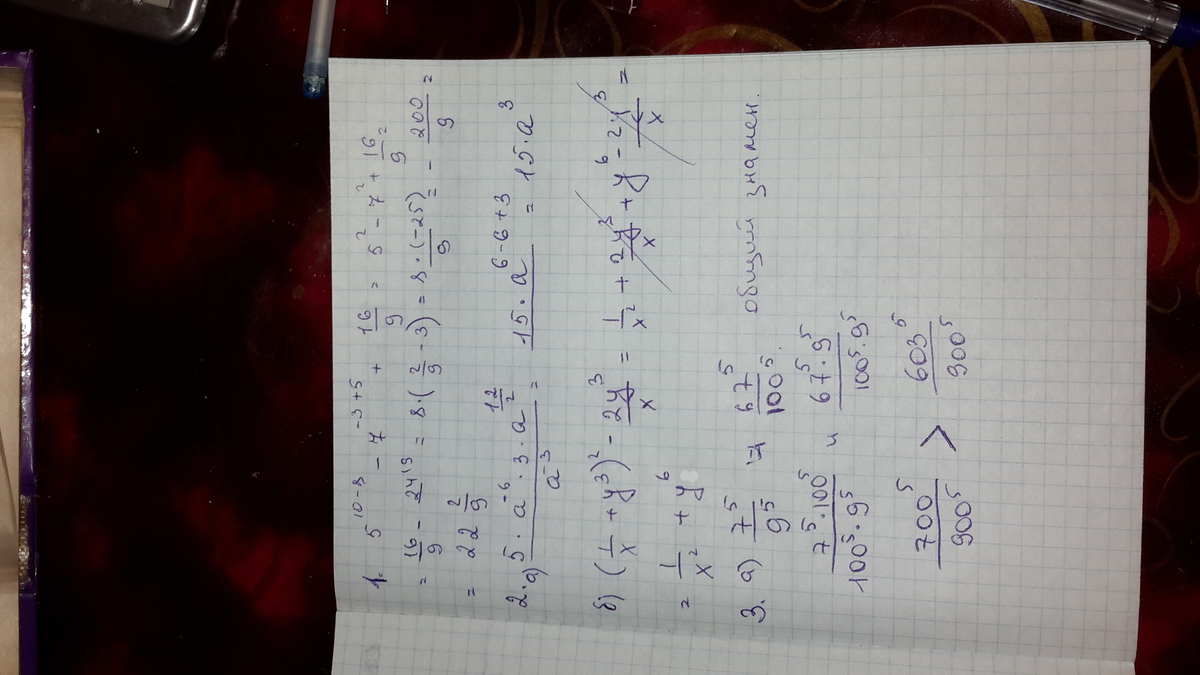 1. 5^(10-8) - 7^(-3+5) + 16/9 = 5² - 7² + 16/9 =
= 16/9 - 24^(19) = 8·(2/9 - 3) = 8·(-25)/9 = - 200/9 =
= 22 2/9
2. а) (5·a^(-6)·3·a^(12/2))/a^(-3) = 15·a^(6-6+3) = 15·a³
б) (1/x + y³)² - 2y³/x = 1/x² + 2y³/x + y⁶ - 2y³/x =
= 1/x² + y⁶
3. а) 7⁵/9⁵ и 67⁵/100⁵. общий знамен.
(7⁵·100⁵)/(100⁵·9⁵) и (67⁵·9⁵)/(100⁵·9⁵)
700⁵/900⁵ > 603⁵/900⁵